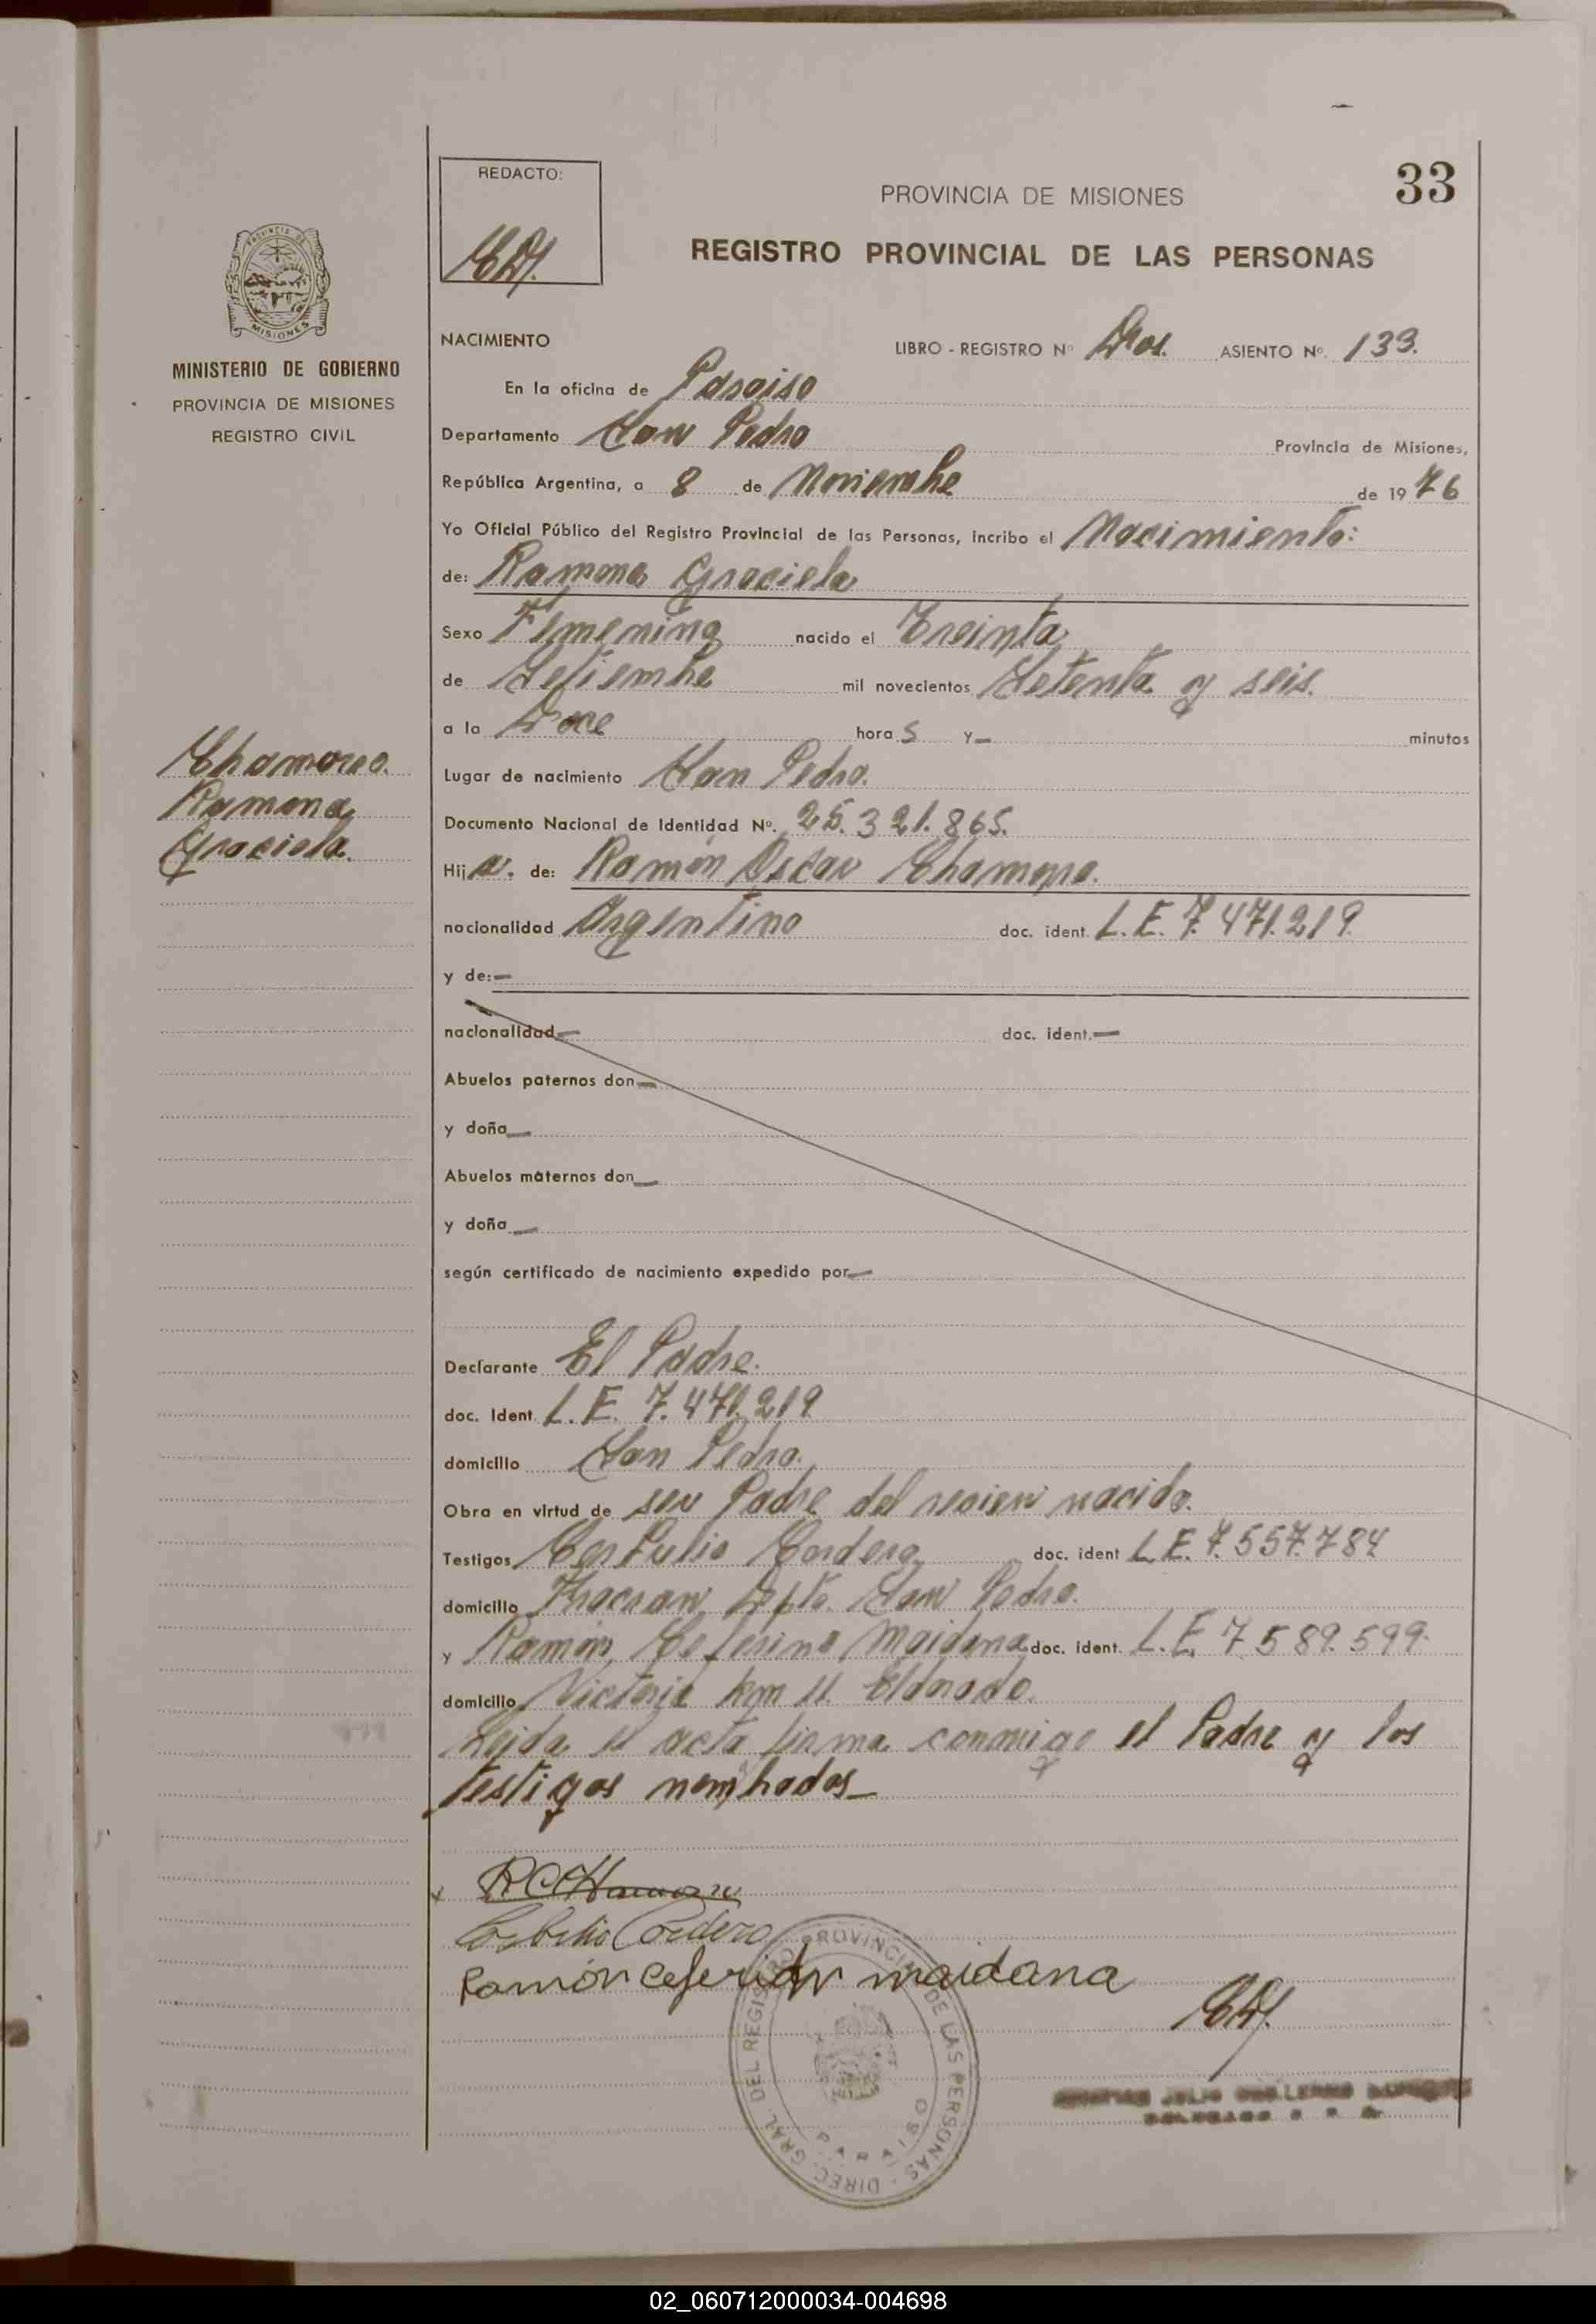 33
REDACTO:
PROVINCIA DE MISIONES
REGISTRO PROVINCIAL DE LAS PERSONAS
PROVINCIA DE
MISIONES
MINISTERIO DE GOBIERNO
PROVINCIA DE MISIONES
REGISTRO CIVIL
NACIMIENTO
LIBRO - REGISTRO Nº Dos. ASIENTO Nº. 133.
En la oficina de Paraiso
Departamento San Pedro Provincia de Misiones,
República Argentina, a 8 de Noviembre de 1976
Yo Oficial Público del Registro Provincial de las Personas, incribo el Nacimiento:
de: Ramona Graciela
Sexo Femenino nacido el Treinta
de Setiembre mil novecientos Setenta y seis.
a la Doce horas y— minutos
Chamorro.
Ramona
Graciela.
Lugar de nacimiento San Pedro.
Documento Nacional de Identidad Nº. 25.321.865.
Hija. de: Ramón Oscar Chamorro.
nacionalidad Argentino doc. ident. L.E. 7.471.219.
y de:—
nacionalidad— doc. ident.—
Abuelos paternos don—
y doña—
Abuelos maternos don—
y doña—
según certificado de nacimiento expedido por—
Declarante El Padre.
doc. Ident. L.E. 7.471.219
domicilio San Pedro.
Obra en virtud de ser Padre del recien nacido.
Testigos Cordero doc. ident L.E. 7.557.784
domicilio Dpto. San Pedro.
y Ramón Ceferino Maidana doc. ident. L.E. 7.589.599.
domicilio Victoria km 11 Eldorado.
Leida el acta firma conmigo el Padre y los
testigos nombrados—
Cordero
Ramón Ceferino maidana
DIREC. GRAL. DEL REGISTRO PROVINCIAL DE LAS PERSONAS
PARAISO
02_060712000034-004698